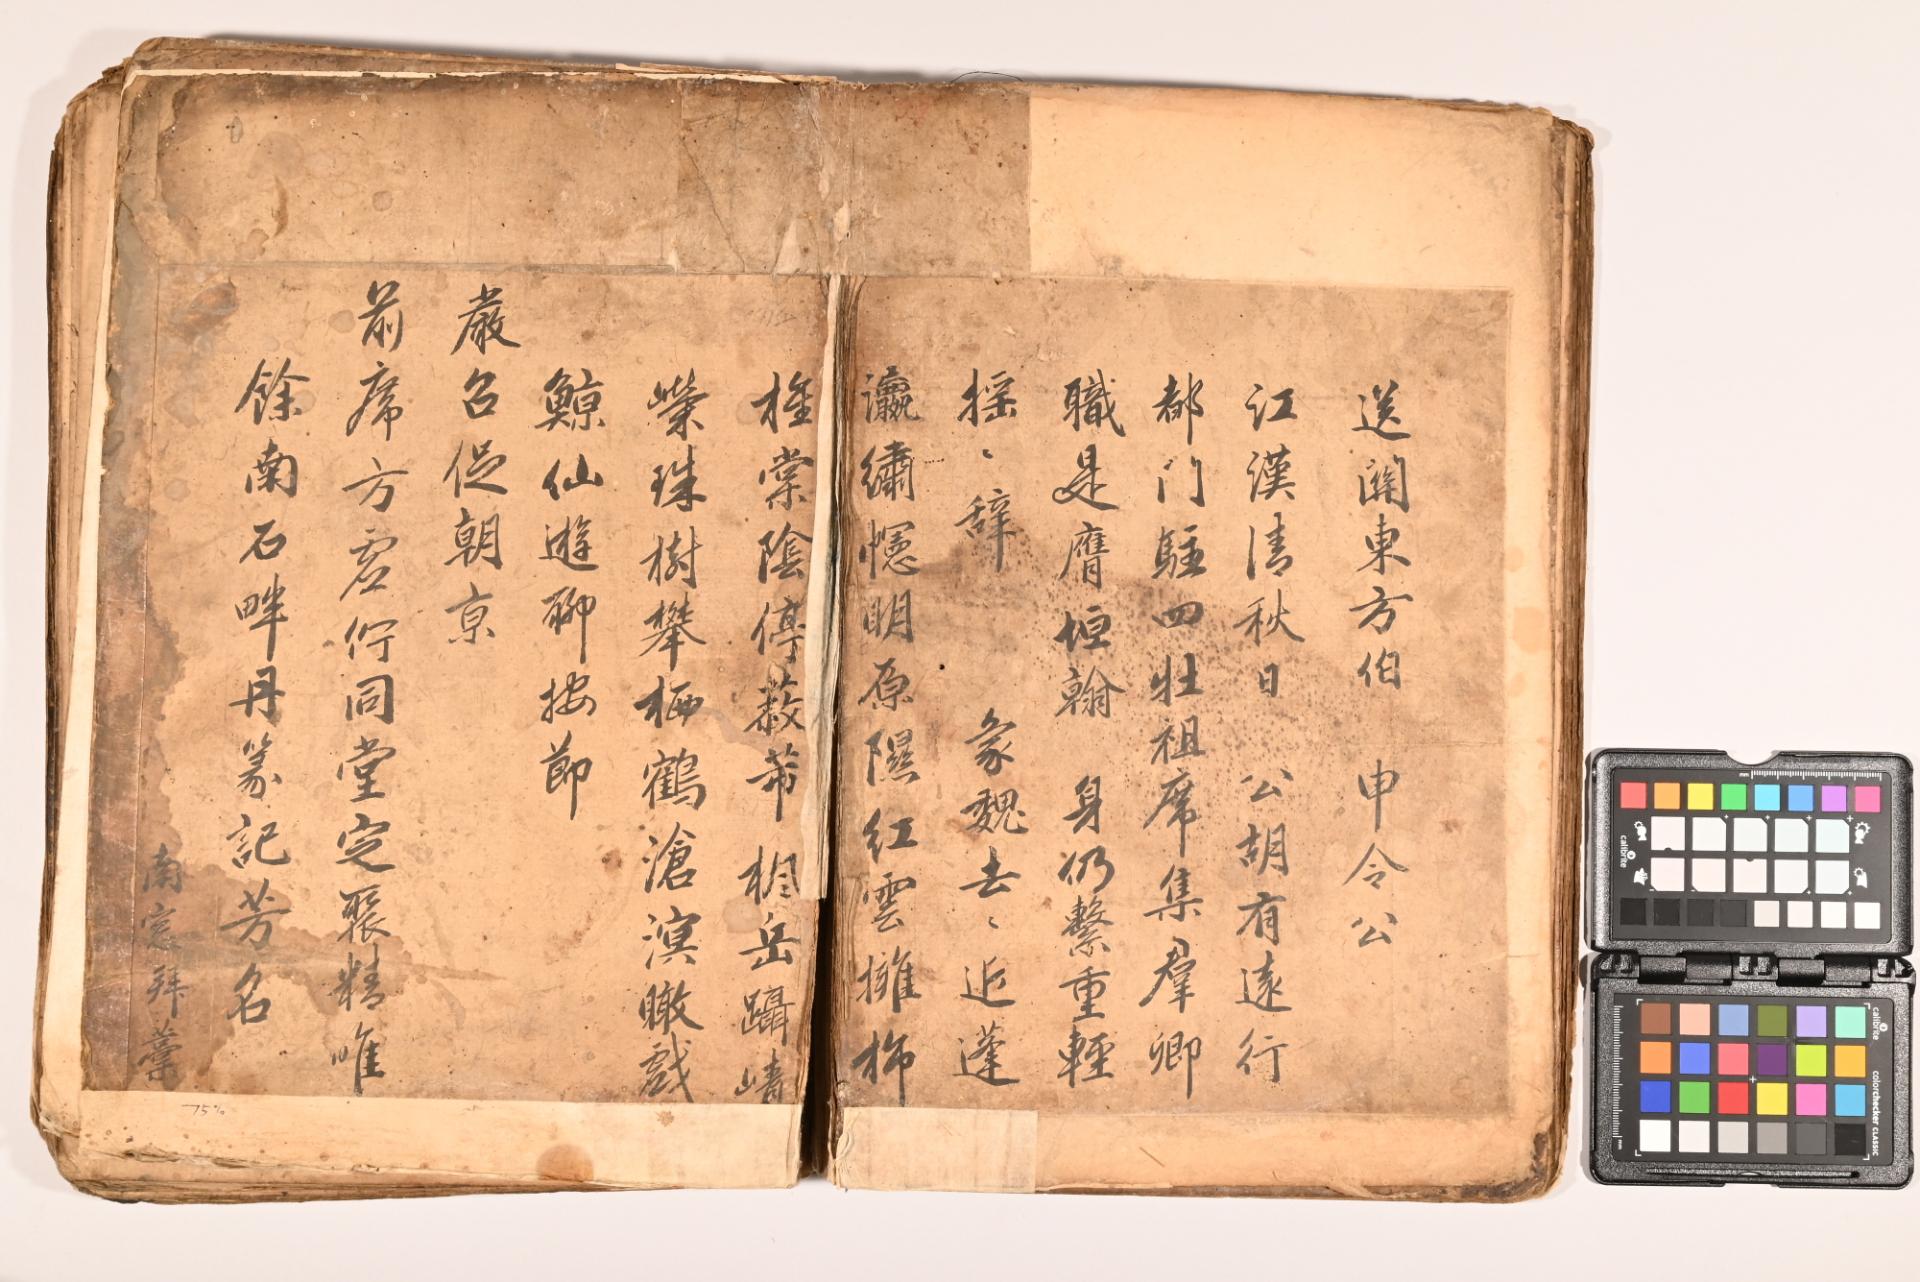 送関東方伯 申令公
江漢清秋日 公胡有遠行
都门駐四牡祖席集羣卿
職是膺垣翰 身仍繫重輕
揺〻辞 象魏去〻近蓬
瀛繡幰明原隰紅雲擁
棠陰停蔽芾楓岳躡
珠樹攀栖鶴滄溟瞰戲
鯨仙遊聊按節
嚴召促朝京
前席方虚佇同堂定聚精唯
餘南石畔丹篆記芳名
南窓拜藁
75%